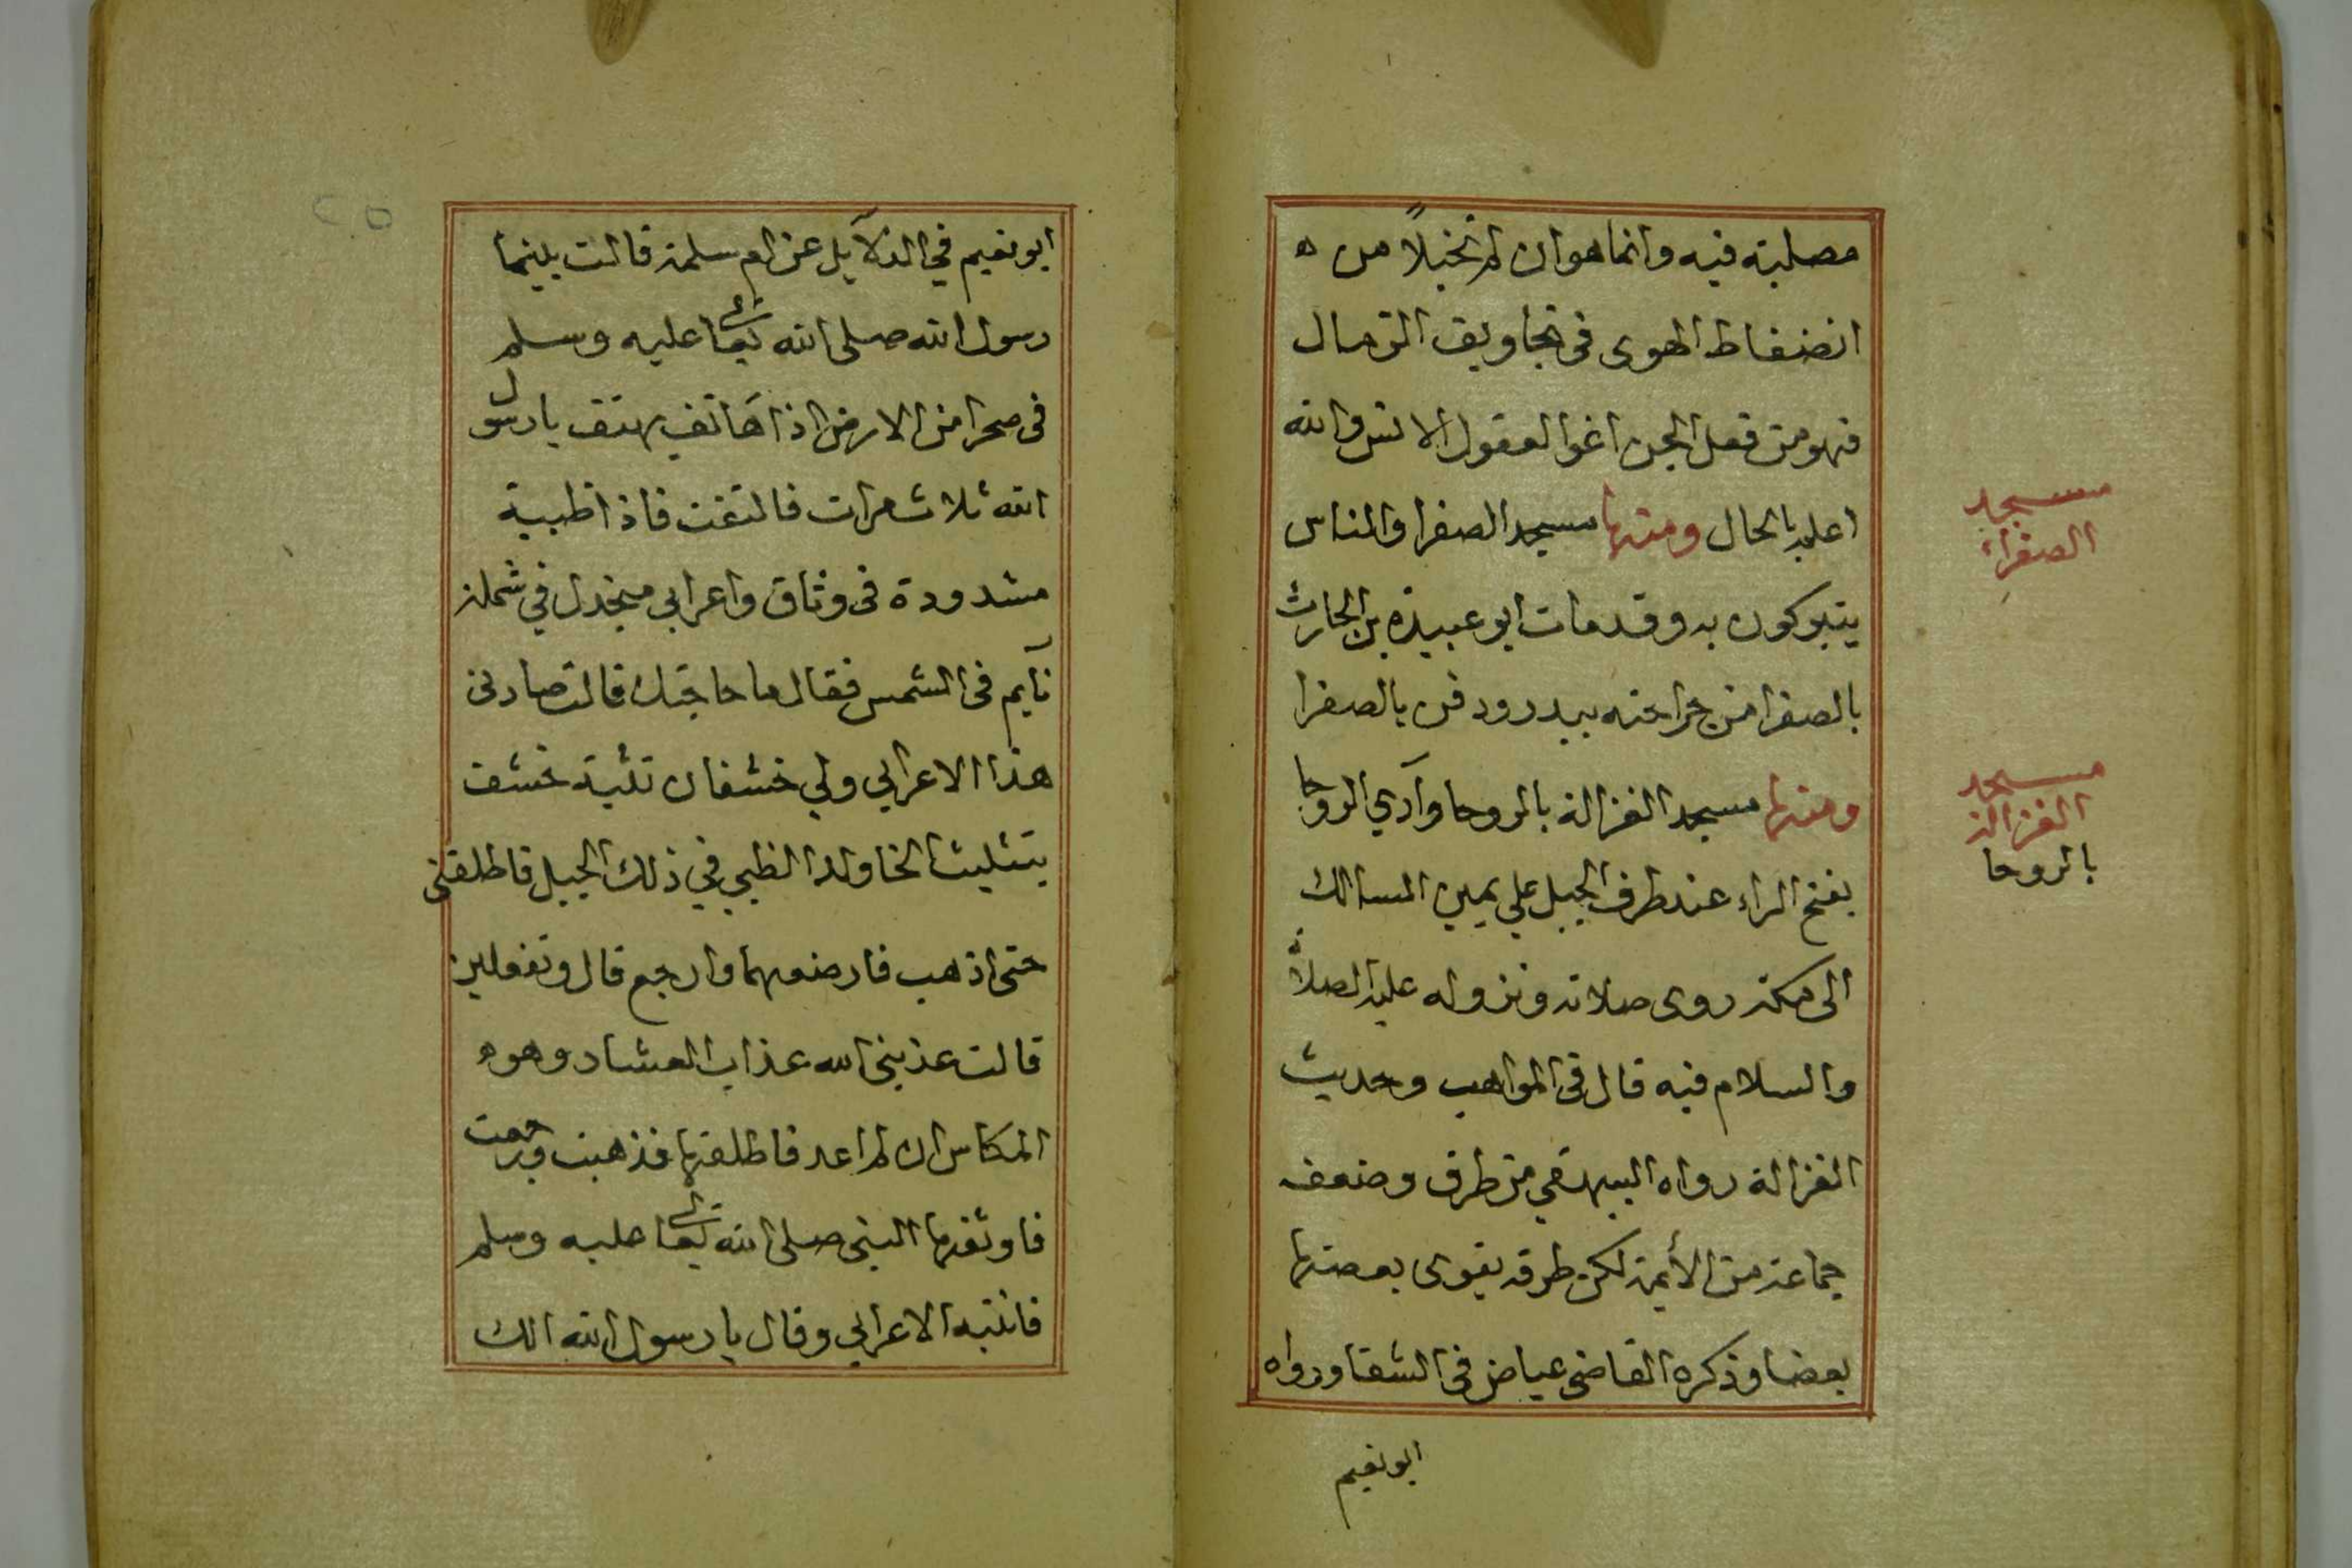 مصلبته فيه وانما هو ان لم تخيلاً من ه
انضغاط الهوى فى تجاويف الرمال
فهو من فعل الجن اغوا لعقول الانس والله
اعلم بالحال ومنها مسجد الصفرا والناس
يتبركون به وقد مات ابو عبيدة بن الحارث
بالصفرا من جراحته ببدر ودفن بالصفرا
ومنها مسجد الغزالة بالروحا وآدي الروحا
بفتح الراء عند طرف الجبل علي يمين السالك
الى مكة روى صلاته ونزوله عليه الصلاة
والسلام فيه قال فى المواهب وحديث
الغزالة رواه البيهقي من طرق وضعفه
جماعة من الأيمة لكن طرقه يقوى بعضها
بعضا وذكره القاضى عياض فى الشفا ورواه
ابو نعيم
مسجد
الصفراء
مسجد
الغزالة
بالروحا
ابو نعيم في الدلآيل عن ام سلمة قالت بينما
رسول الله صلى الله تعالى عليه وسلم
فى صحرا من الارض اذا هاتف يهتف يا رسول
الله ثلاث مرات فالتفت فاذا ظبية
مشدودة فى وثاق واعرابي منجدل في شملة
نآيم فى الشمس فقال ما حاجتك قالت صادنى
هذا الاعرابي ولي خشفان تثنية خشف
بتثليث الخا ولد الظبي في ذلك الجبل فاطلقنى
حتى اذهب فارضعهما وارجع قال وتفعلين
قالت عذبنى الله عذاب العشار وهو ه
المكاس ان لم اعد فاطلقها فذهبت ورجعت
فاوثقها النبى صلى الله تعالى عليه وسلم
فانتبه الاعرابي وقال يا رسول الله الك